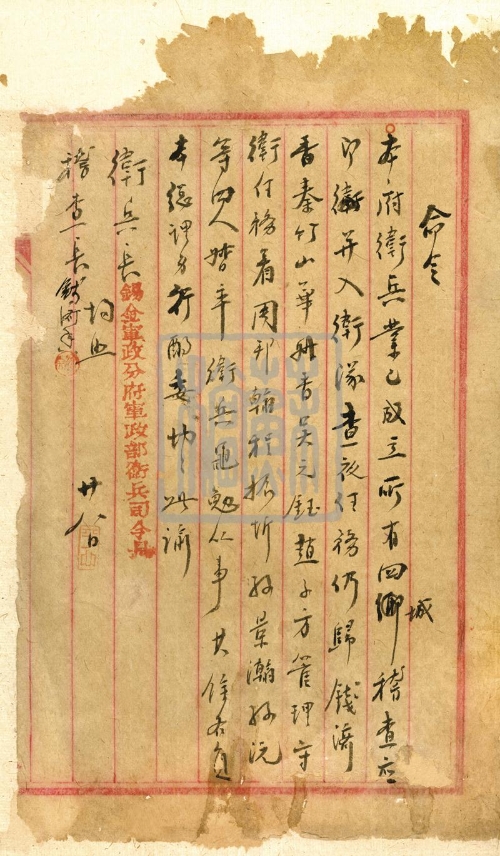 命令
本府衛兵業已成立所有四鄉城稽查應
即衛并入衛隊查夜任務仍歸錢濟
香秦竹山華 香吴之鈺趙子方管理守
衛任務着周邦翰程振圻 景瀚 沅
等四人督率衛兵黽勉從事其餘各員
本總理另行酌委切切此諭
衛兵長
稽查長 均此
錫金軍政分府軍政部衛兵司令員
廿八日